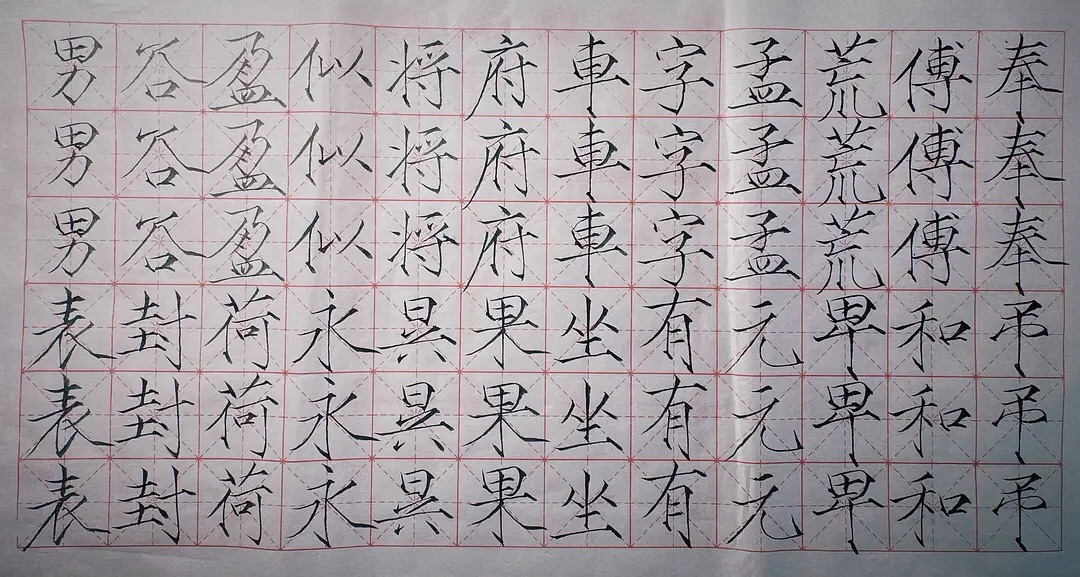 男谷盈似将府車字孟荒傅奉
男谷盈似将府車字孟荒傅奉
男谷盈似将府車字孟荒傅奉
表封荷永異果坐有元卑和弔
表封荷永異果坐有元卑和弔
表封荷永異果坐有元卑和弔